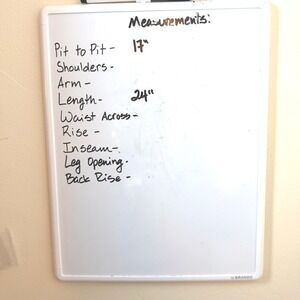 Measurements:
Pit to Pit - 17"
Shoulders -
Arm -
Length - 24"
Waist Across -
Rise -
Inseam -
Leg Opening -
Back Rise -